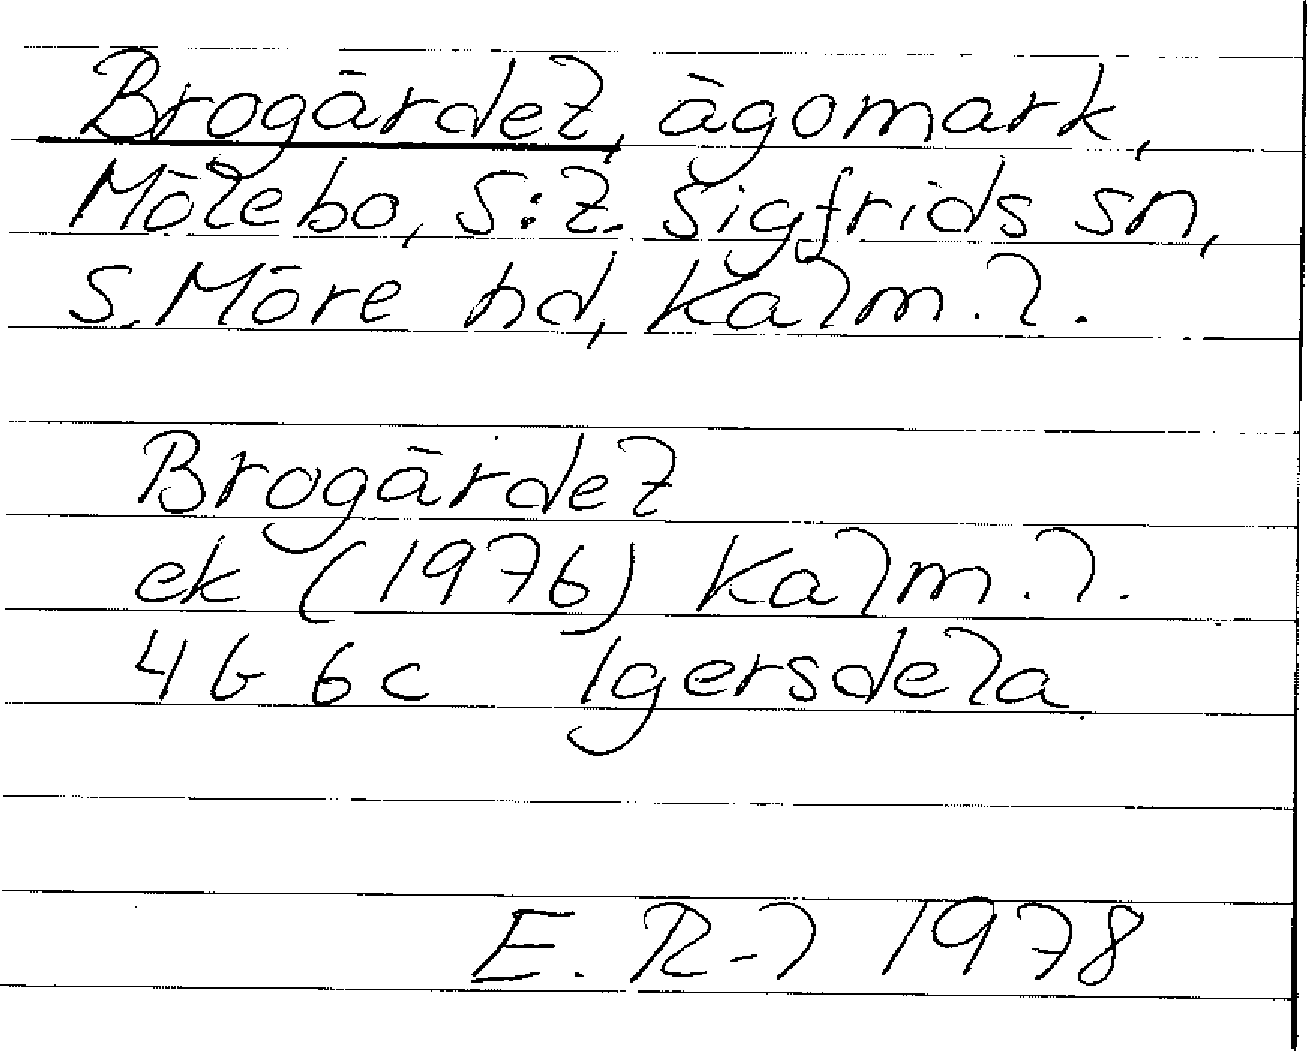 Brogärdet, ägomark,
Mölebo, S:t. Sigfrids sn,
S. Möre hd, Kalm. l.
Brogärdet
ek (1976) Kalm. l.
4G 6c Igersdela
E. R-l 1978